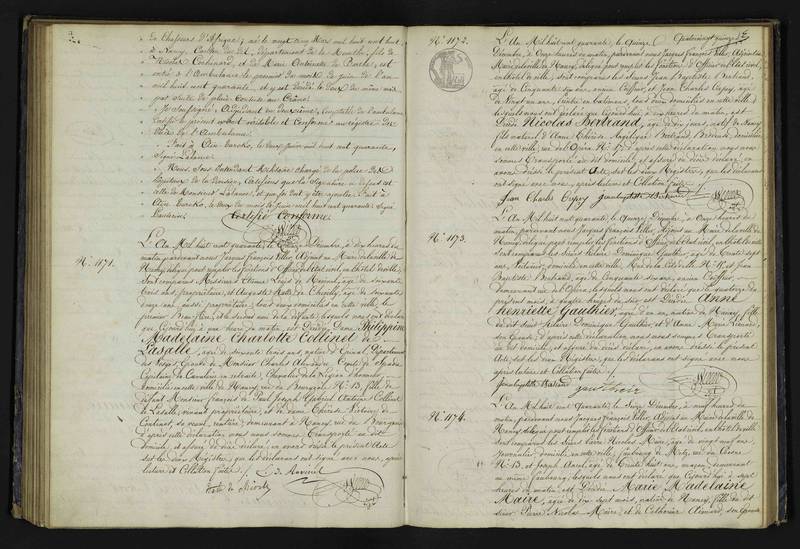 en Chasseurs d'Afrique, né le vingt cinq Mars mil huit cent huit,
à Nancy, Canton du dit, département de la Meurthe, fils de
Nicolas et de Marie Antoinette est
entré à l'Ambulance le premier du mois de Juin de l'an
mil huit cent quarante, et y est décédé le deux du même mois
par suite de
Je soussigné, Comptable de l'ambulance
certifie le présent véritable et conforme au registre des
décès de l'Ambulance.
Fait à juin mil huit cent quarante,
Signé Lalanne
Nous Sous Intendant Militaire chargé de la police des
hôpitaux de la Division, certifions que la signature ci dessus est
celle de Monsieur Lalanne, et que foi doit y être ajoutée. Fait à
du mois de juin mil huit cent quarante Signé
Certifié Conforme
N.° 1171.
L'An Mil huit cent quarante, le Quinze Décembre, à dix heures du
matin, pardevant nous Jacques François Villes, Adjoint au Maire de la ville de
Nancy, délégué pour remplir les fonctions d'Officier de l'état civil, en l'hôtel de ville,
sont comparus Messieurs Etienne Louis de Ravinel, âgé de soixante
trois ans, propriétaire, et Auguste de âgé de soixante
onze ans, aussi propriétaire, tous deux domiciliés en cette ville, le
premier Beau-frère, et le second ami de la défunte, lesquels nous ont déclaré
que à une heure du matin, est décédée, Dame Philippine
Madelaine Charlotte Collinet de
Lasalle, âgée de soixante trois ans, native d'Epinal, Département
des Vosges, Epouse de Monsieur Charles Comte de Spada,
Capitaine de Cavalerie en retraite, Chevalier de la Légion d'honneur,
domiciliée en cette ville de Nancy, rue de Bourgogne N.° 13, fille de
défunt Monsieur François de Paul Joseph Gabriel Antoine Collinet
de Lasalle, vivant propriétaire, et de dame Thérèse Victoire de
sa veuve, rentière, demeurant à Nancy, rue de Bourgogne.
D'après cette déclaration nous nous sommes transporté au dit
domicile, et assuré du décès, en avons dressé le présent Acte
sur les deux Registres, que les déclarants ont signé avec nous, après
lecture et Collation faite.
Ravinel
N.° 1172.
L'An Mil huit cent quarante, le Quinze
Décembre, à Onze heures du matin, pardevant nous Jacques François Villes, Adjoint au
Maire de la ville de Nancy, délégué pour remplir les fonctions d'Officier de l'état civil,
en l'hôtel de ville, sont comparus les sieurs Jean Baptiste Bertrand,
âgé de Cinquante six ans, ancien Coiffeur, et Jean Charles Cupy, âgé
de Vingt un ans, Peintre en batimens, tous deux domiciliés en cette ville,
lesquels nous ont déclaré que heures du matin, est
Décédé Nicolas Bertrand, âgé de dix jours, natif de Nancy,
fils naturel d'Anne Thérèse Angélique Bertrand, Brodeuse, domiciliée
en cette ville, rue de l'Opéra, N.° 17. D'après cette déclaration, nous nous
sommes transporté au dit domicile, et assuré du décès déclaré, en
avons dressé le présent Acte, sur les deux Registres, que les déclarants
ont signé avec nous, après lecture et Collation faite.
Jean Charles Cupy Jeanbaptiste Bertrand
N.° 1173.
L'An Mil huit cent quarante, le Quinze Décembre, à Onze heures du
matin, pardevant nous Jacques François Villes, Adjoint au Maire de la ville de
Nancy, délégué pour remplir les fonctions d'Officier de l'état civil, en l'hôtel de ville,
sont comparus les sieurs Hilaire Dominique Gauthier, âgé de trente sept
ans, domicilié en cette ville, Rue N.° 17, et Jean
Baptiste Bertrand, âgé de Cinquante six ans, ancien Coiffeur,
demeurant rue de l'Opéra, lesquels nous ont déclaré que le quatorze du
présent mois, à quatre heures du soir, est Décédée Anne
henriette Gauthier, âgée d'un an, native de Nancy, fille
du dit sieur Hilaire Dominique Gauthier, et d'Anne Marie
son Epouse, D'après cette déclaration, nous nous sommes transporté
au dit domicile, et assuré du décès déclaré, en avons dressé le présent
Acte, sur les deux Registres, que les déclarants ont signé avec nous
après lecture et Collation faite.
Jeanbaptiste Bertrand
N.° 1174.
L'An Mil huit cent Quarante, le Seize Décembre, à neuf heures du
matin, pardevant nous Jacques François Villes, Adjoint au Maire de la ville de
Nancy, délégué pour remplir les fonctions d'Officier de l'état civil, en l'hôtel de ville,
sont comparus les sieurs Pierre Nicolas Maire, âgé de vingt neuf ans,
Journalier, domicilié en cette ville, faubourg de Metz, rue
N.° 13, et Joseph âgé de trente huit ans, maçon, demeurant
au même faubourg, lesquels nous ont déclaré que à sept
heures du matin, est Décédée Marie Madelaine
Maire, âgée de dix sept mois, native de Nancy, fille du dit
sieur Pierre Nicolas Maire, et de Catherine son Epouse